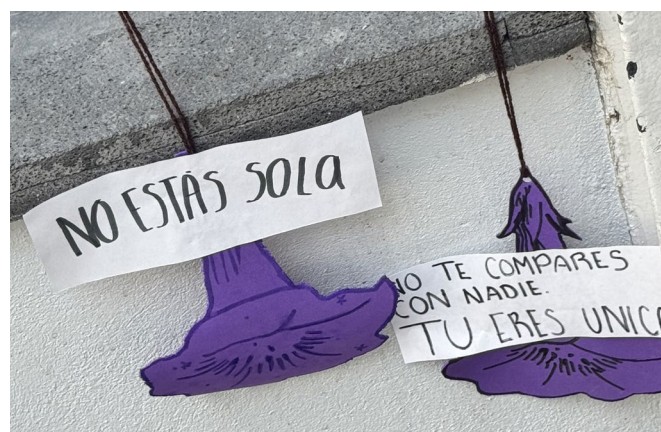 NO ESTÁS SOLA
NO TE COMPARES
CON NADIE.
TU ERES UNICA